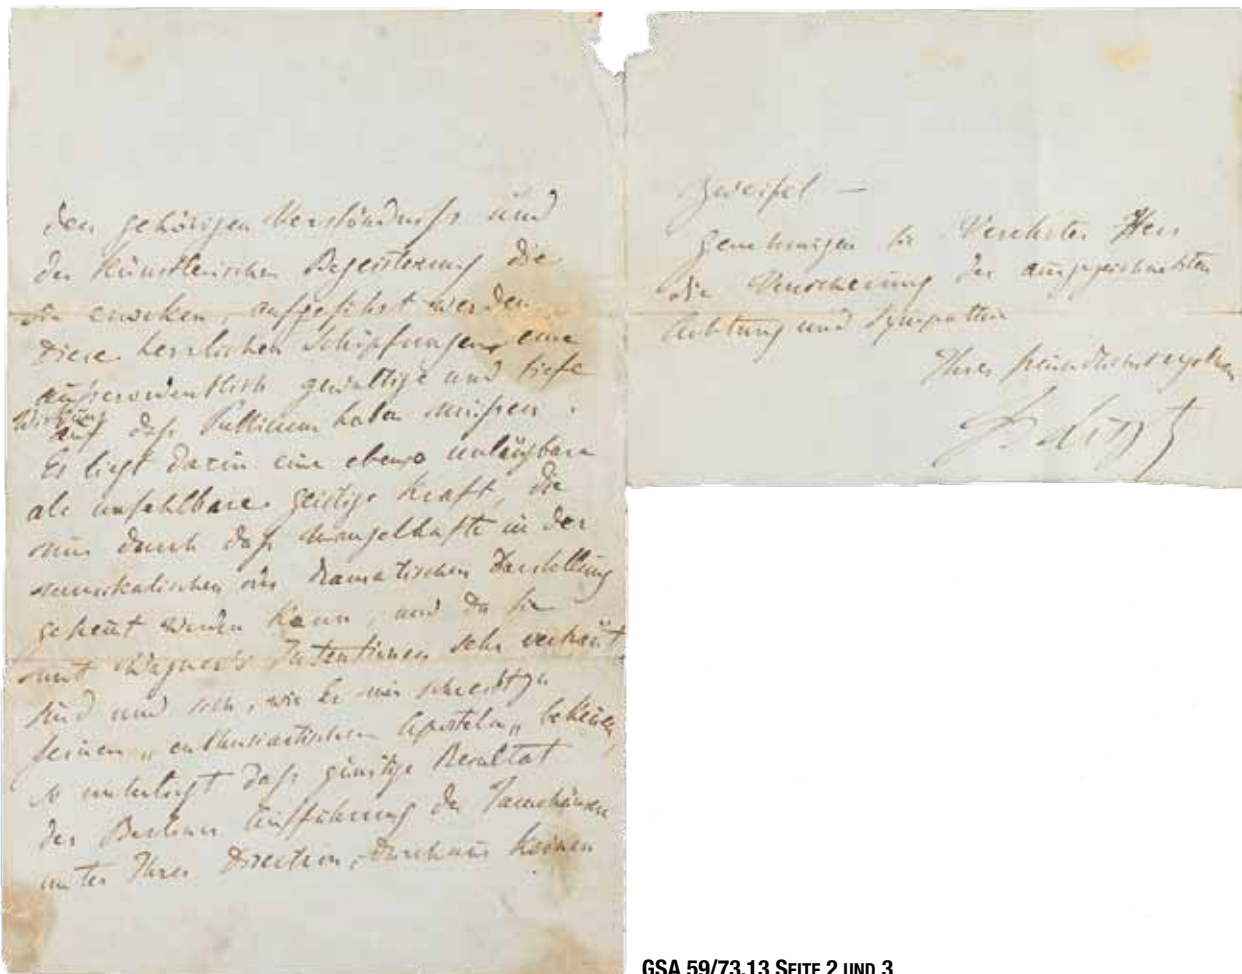 den gehörigen Verständniss und
der künstlerischen Begeisterung die
sie erwecken, aufgeführt werden
Diese herrlichen Schöpfungen eine
ausserordentlich gewaltige und tiefe
Wirkung
auf dass Publicum haben müssen.
Es liegt darin eine ebenso unläugbare
als unfehlbare geistige Kraft, die
nur durch dass Mangelhafte in der
musikalischen oder dramatischen Darstellung
gehemt werden kann, und da Sie
mit Wagner's Intentionen sehr vertraut
sind und sich, wie Er mir schreibt zu
seinen „enthusiastischen Aposteln„ bekennen,
so unterliegt dass günstige Resultat
der Berliner Aufführung des Tannhäuser
unter Ihrer Direction, durchaus keinen
Zweifel —
Genehmigen Sie Verehrter Herr
die Versicherung der ausgezeichnetsten
Achtung und Sympathie
Ihres freundlichst ergebenen
F. Liszt
GSA 59/73,13 SEITE 2 UND 3